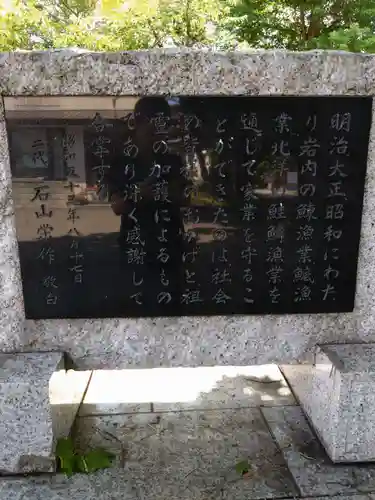 明治大正昭和にわた
り岩内の鰊漁業鱈漁
業北洋 鮭鱒漁業を
通じて家業を守るこ
とができたのは社会
の皆様のおかげと祖
霊の加護によるもの
であり深く感謝して
合掌する
昭和五十一年八月十七日
二代 石山常作 敬白